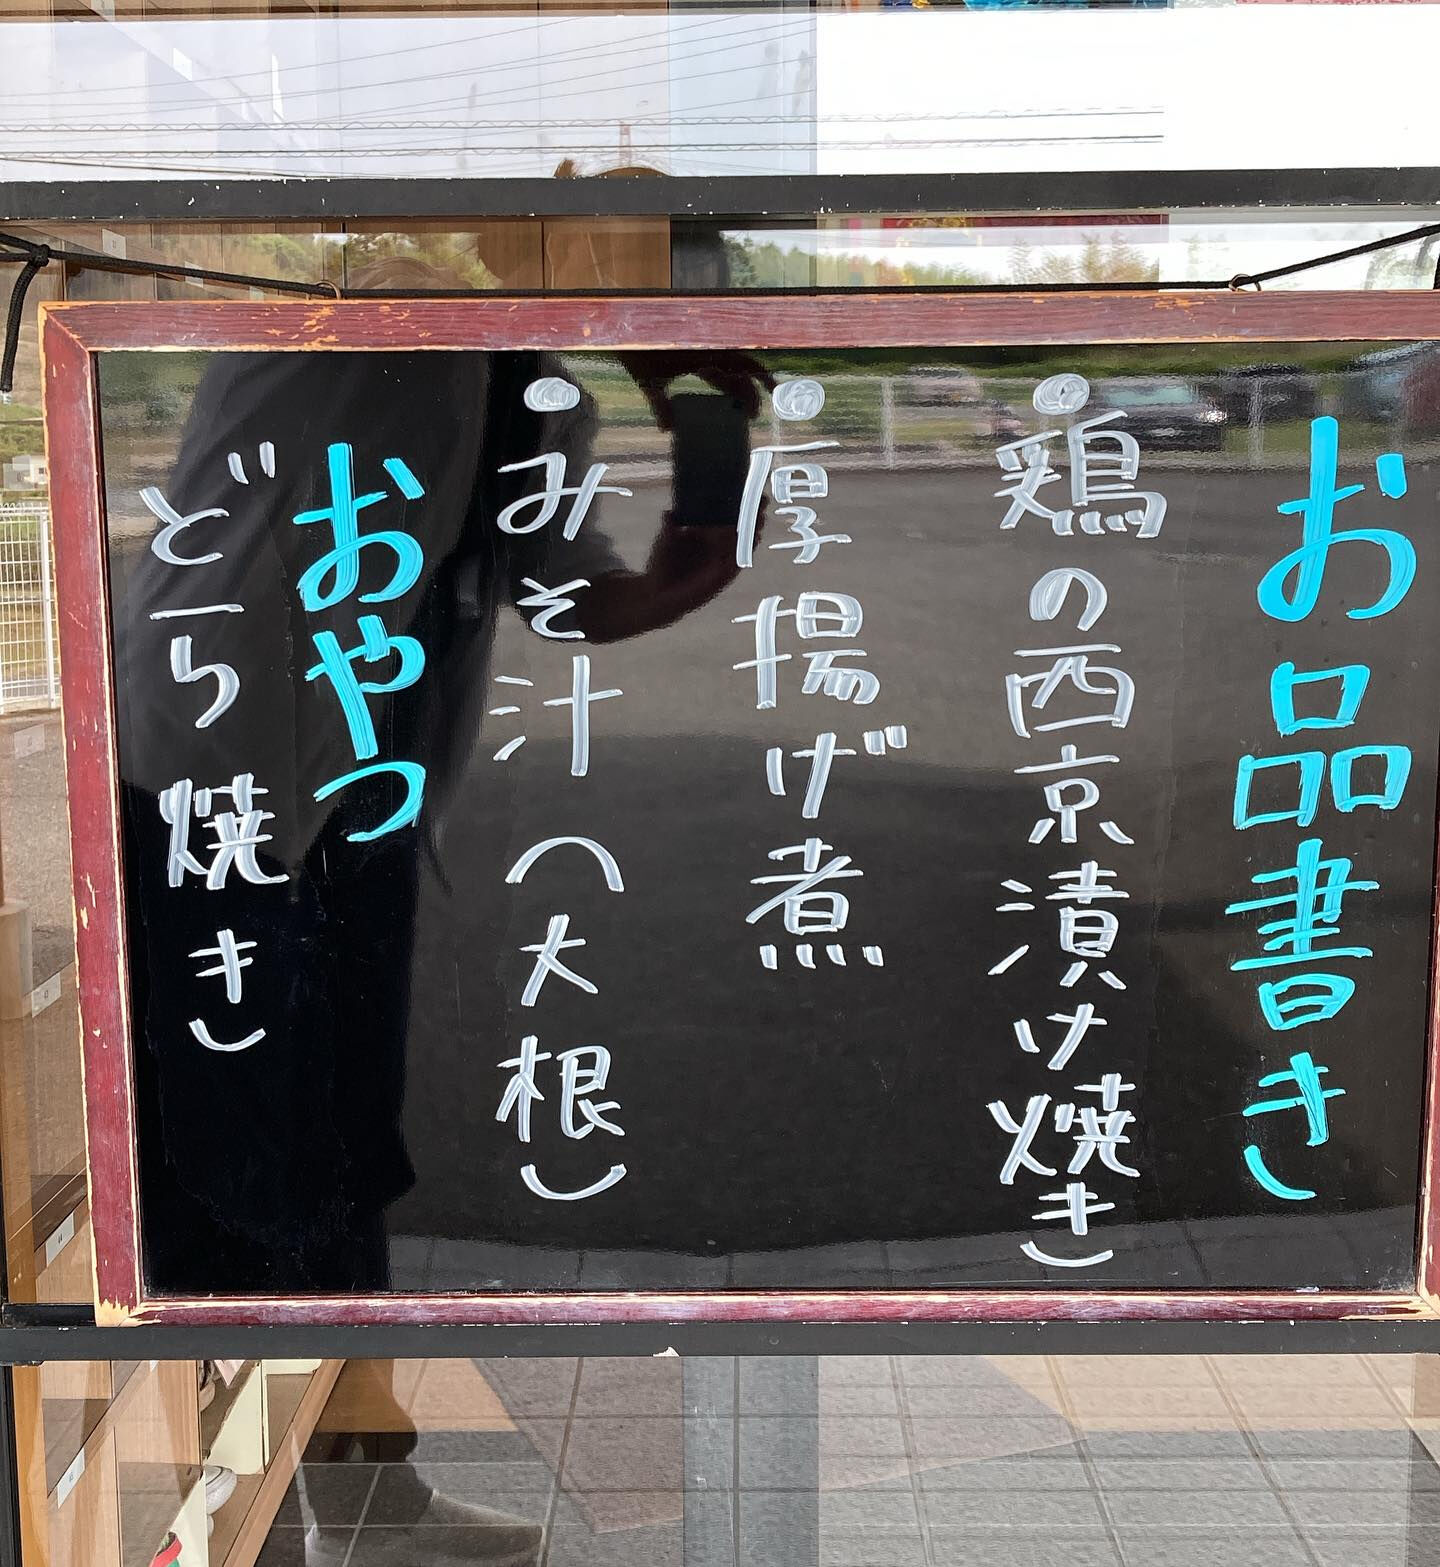 お品書き
・鶏の西京漬け焼き
・厚揚げ煮
・みそ汁(大根)
おやつ
どら焼き